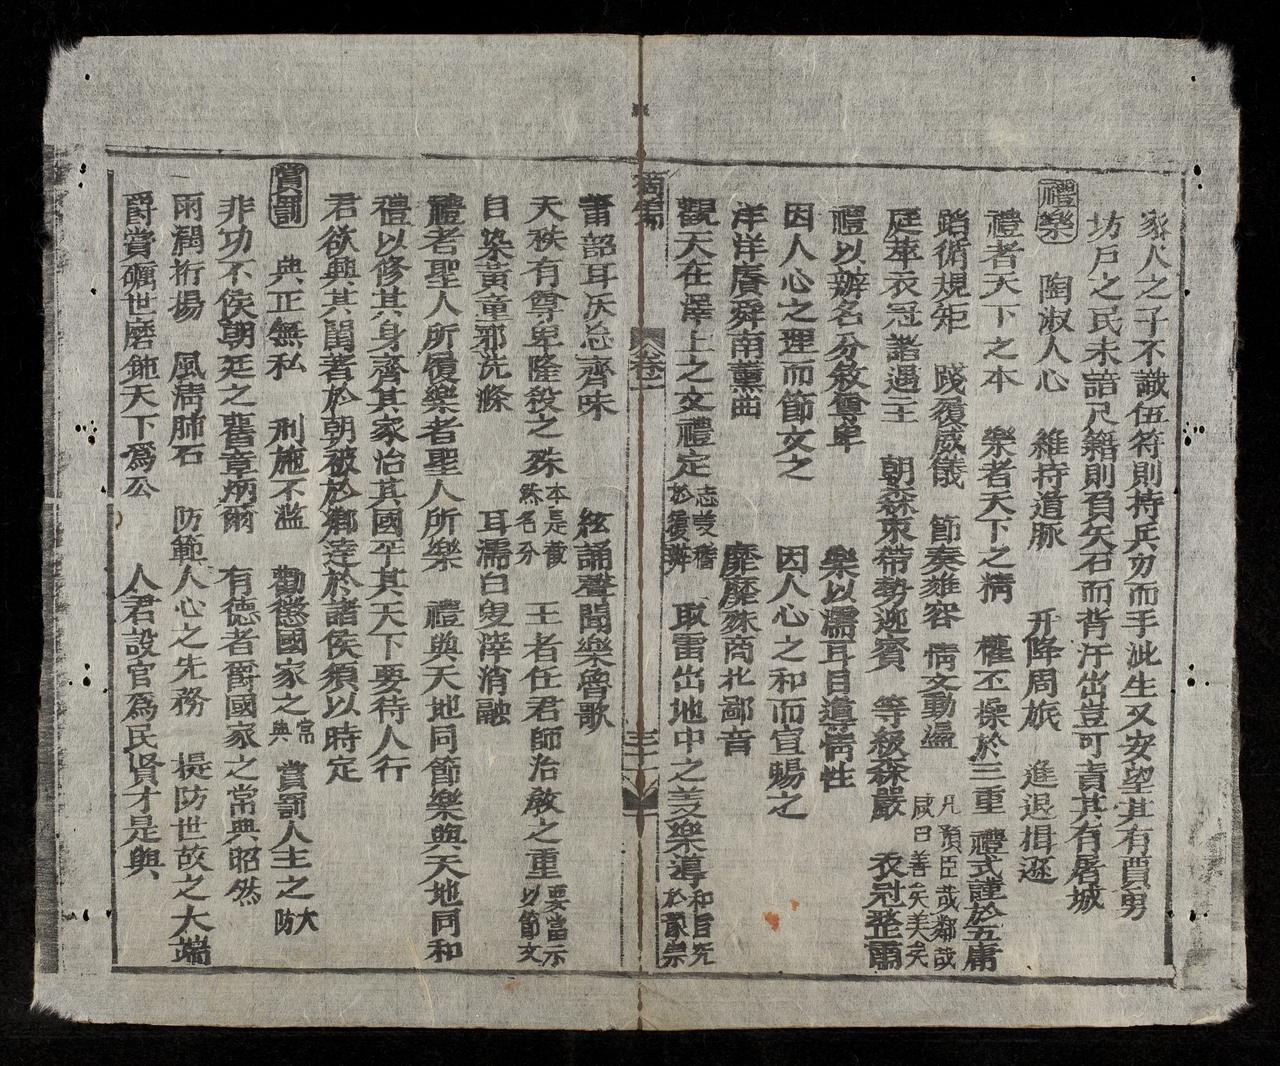 家人之子不識伍符則持兵刃而手泚生又安望其有賈男
坊戶之民未諳尺籍則負矢石而背汗出豈可責其有屠城
禮樂 陶淑人心 維持道脉 升降周旅 進退揖遜
禮者天下之本 樂者天下之情 權丕操於三重 禮式謹於五庸
蹈循規矩 踐履威儀 節奏雍容 情文動盪 凡預臣哉鄰哉 咸曰善矣美矣
庭萃衣冠諧遇主 朝森束帶勢迎賓 等級森嚴 衣冠整肅
禮以辨名分敘尊卑 樂以濡耳目道情性
因人心之理而節文之 因人心之和而宣暢之
洋洋賡舜南薰曲 靡靡殊商北鄙音
觀天在澤上之文禮定 取雷出地中之 樂導
卷一
簫韶耳 忘齊味 絃誦聲聞樂魯歌
天秩有尊卑隆殺之殊 本是截然名分 王者任君師治敎之重 要當示以節文
自染黃童邪洗滌 耳濡白叟滓消融
禮者聖人所履樂者聖人所樂 禮與天地同節樂與天地同和
禮以修其身齊其家治其國平其天下要待人行
君欲興其閨著於朝被於鄉達於諸侯須以時定
賞罰 典正無私 刑施不濫 勸懲國家之常典 賞罰人主之大防
非功不侯朝廷之舊章炳爾 有德者爵國家之常典昭然
雨潤桁揚 風淸肺石 防範人心之先務 提防世故之大端
爵賞礪世磨鈍天下爲公 人君設官爲民賢才是與